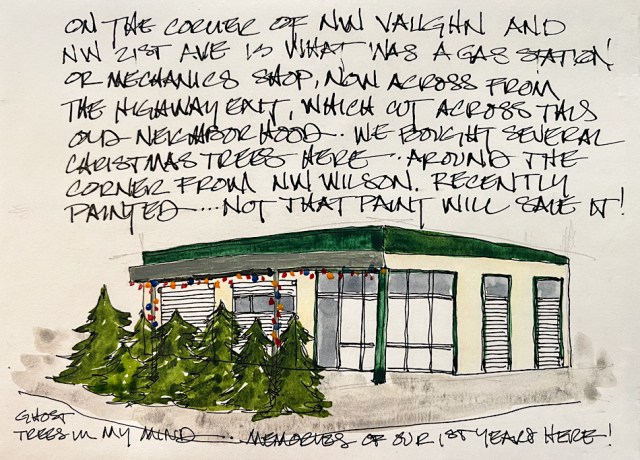 ON THE CORNER OF NW VAUGHN AND
NW 21ST AVE IS WHAT WAS A GAS STATION
OR MECHANICS SHOP, NOW ACROSS FROM
THE HIGHWAY EXIT, WHICH CUT ACROSS THIS
OLD NEIGHBORHOOD.. WE BOUGHT SEVERAL
CHRISTMAS TREES HERE.. AROUND THE
CORNER FROM NW WILSON. RECENTLY
PAINTED...NOT THAT PAINT WILL SAVE IT!
GHOST
TREES IN MY MIND... MEMORIES OF OUR 1ST YEARS HERE!